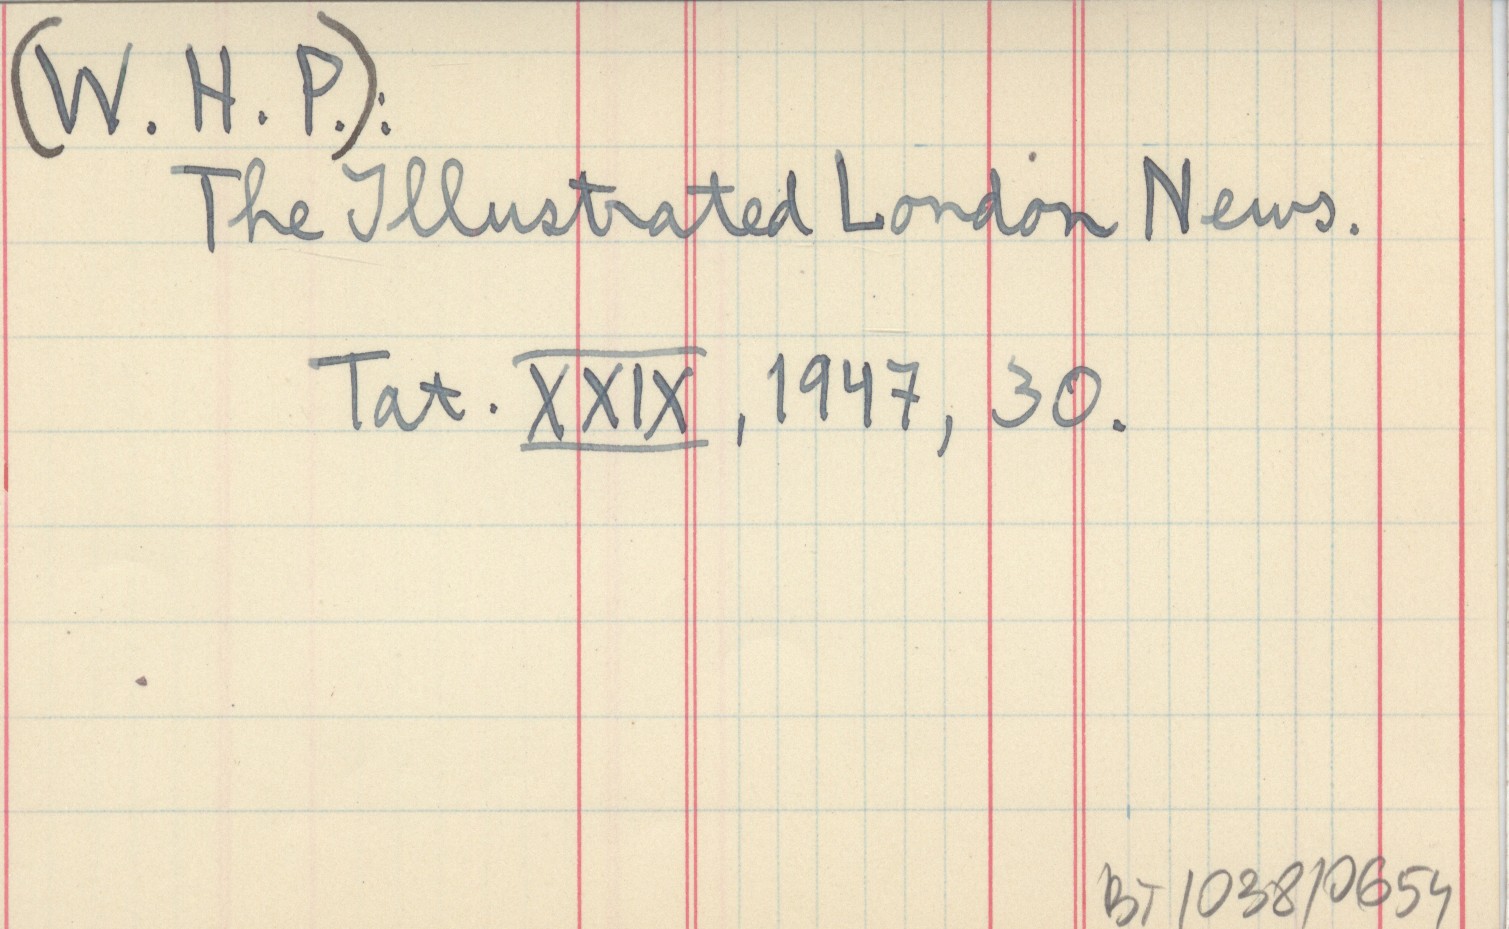 (W. H. P.):
The Illustrated London News.
Tat. XXIX, 1947, 30.
BT/038/0654